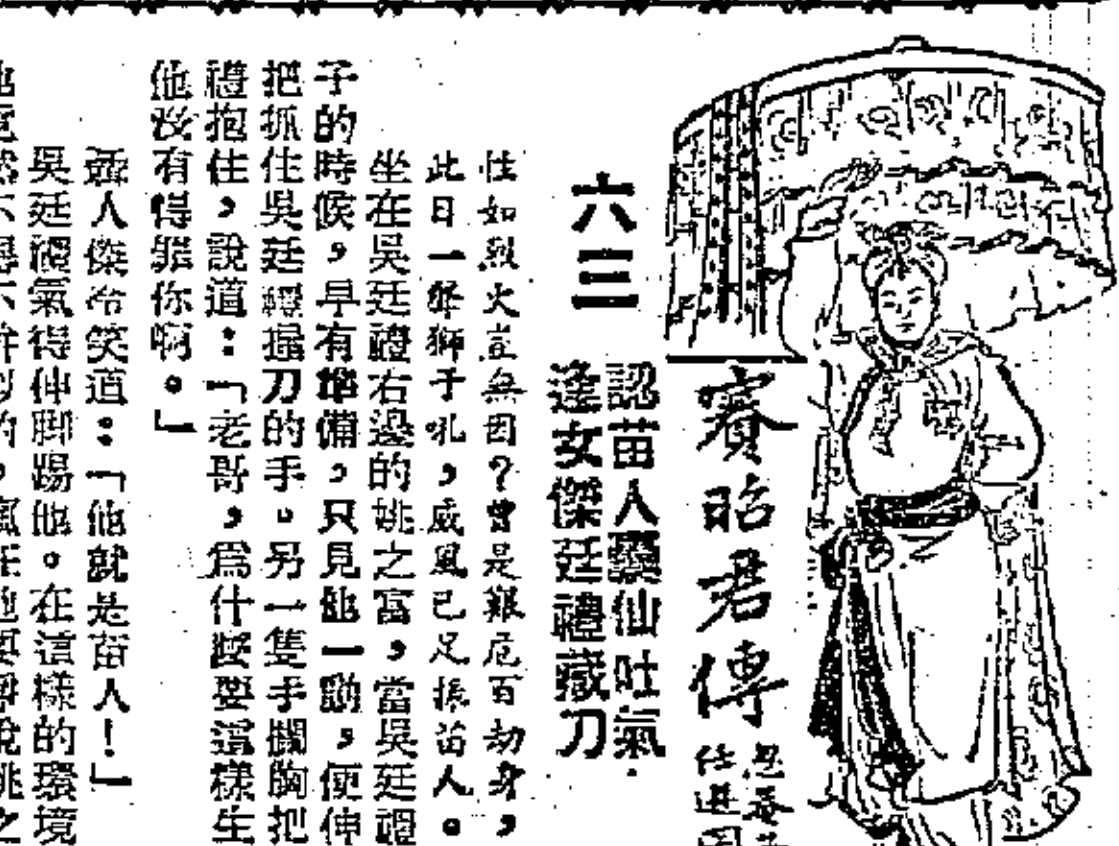 賽昭君傳
任進
六三
認苗人藥仙吐氣
逢女傑廷禮藏刀
性如烈火豈無因？曾是艱厄百劫身，
此日一聲獅子吼，威風已足振苗人。
坐在吳廷禮右邊的姚之富，當吳廷禮
子的時候，早有準備，只見他一動，便伸
把抓住吳廷禮握刀的手。另一隻手攔胸把
禮抱住，說道：「老哥，爲什麼要這樣生
他沒有得罪你啊。」
人傑冷笑道：「他就是苗人！」
吳廷禮氣得伸脚踢他。在這樣的環境